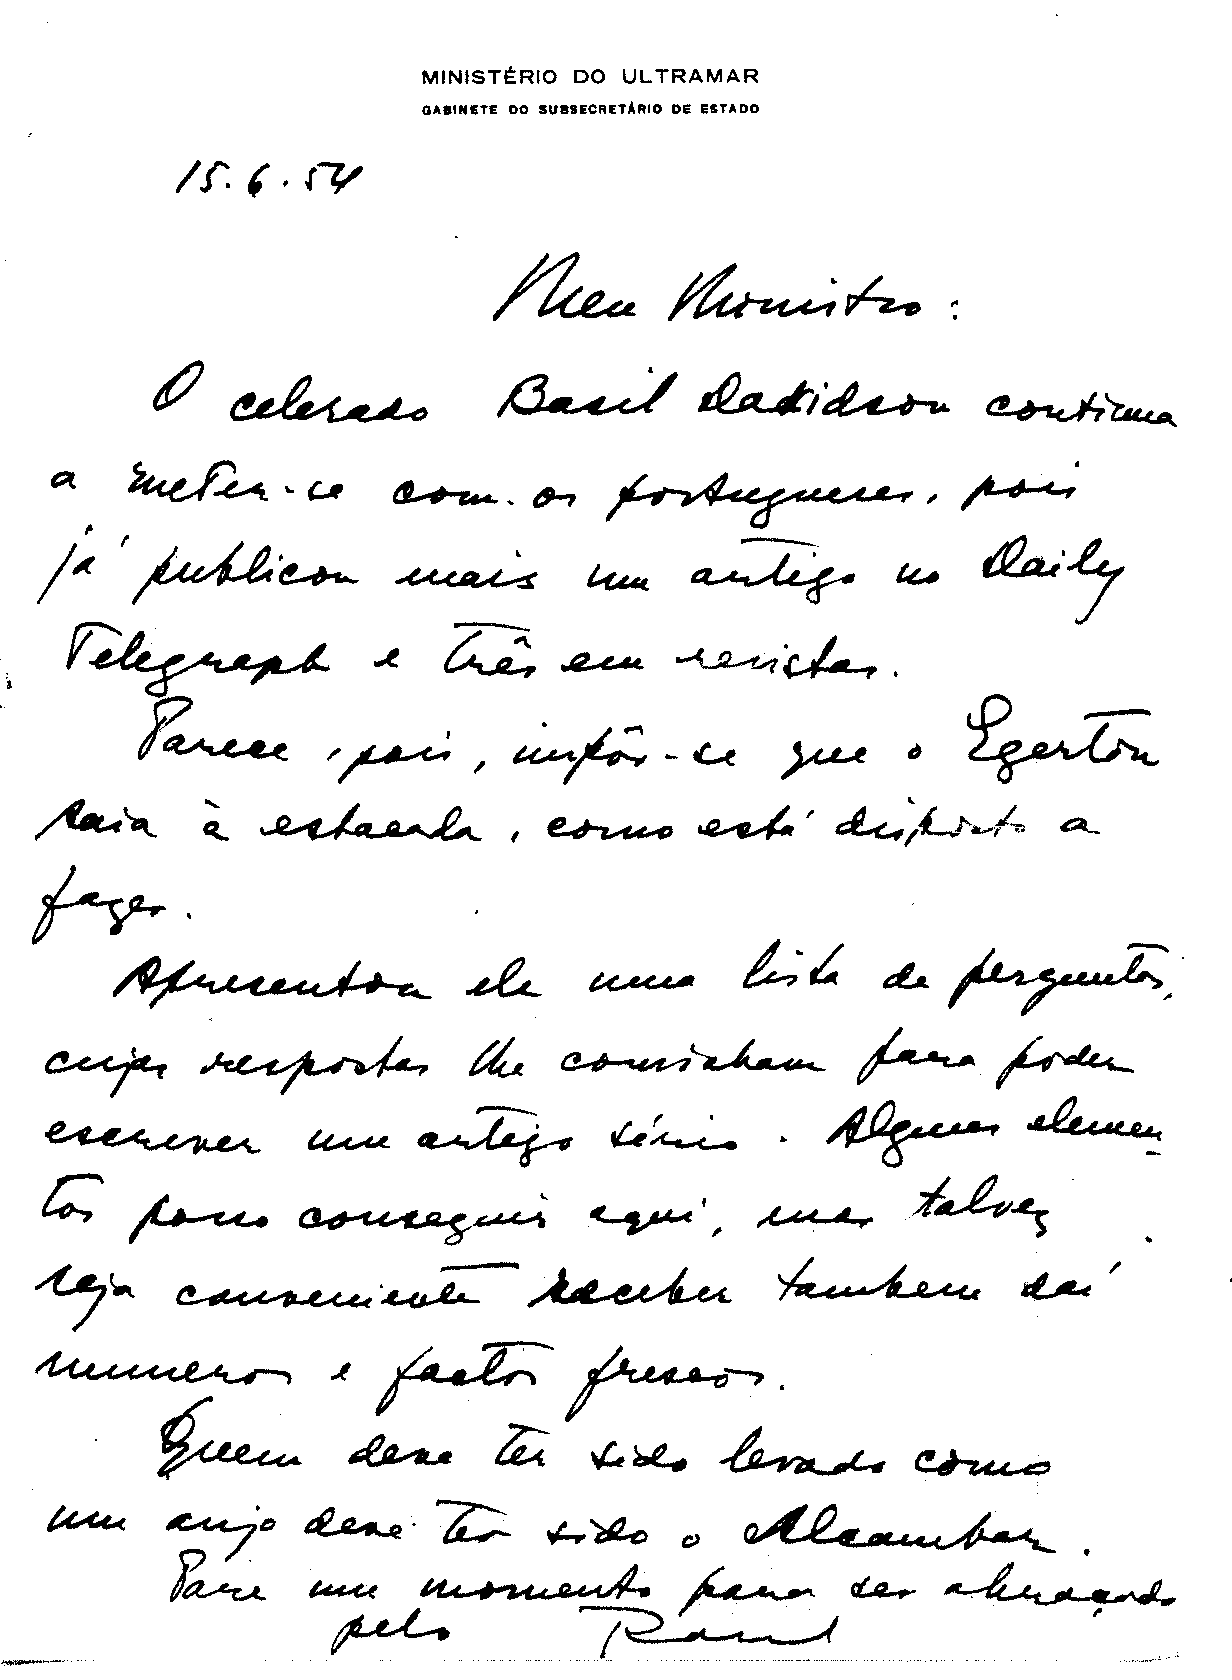 MINISTÉRIO DO ULTRAMAR
GABINETE DO SUBSECRETÁRIO DE ESTADO
15.6.54
Meu Ministro:
O celerado Basil Davidson continua
a meter-se com os portugueses, pois
já publicou mais um artigo no Daily
Telegraph e três em revistas.
Parece, pois, impôr-se que o Egerton
saia à estacada, como está disposto a
fazer.
Apresentou ele uma lista de perguntas,
cujas respostas lhe convinham para poder
escrever um artigo sério. Alguns elemen-
tos posso conseguir aqui, mas talvez
seja conveniente receber tambem daí
numeros e factos frescos.
Quem deve ter sido levado como
um anjo deve ter sido o Alcambar.
Pare um momento para ser abraçado
pelo Raul